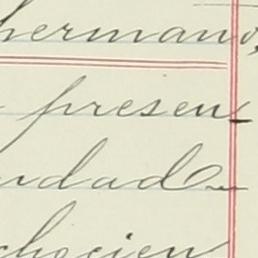 hermano,
presen-
dad
chocien